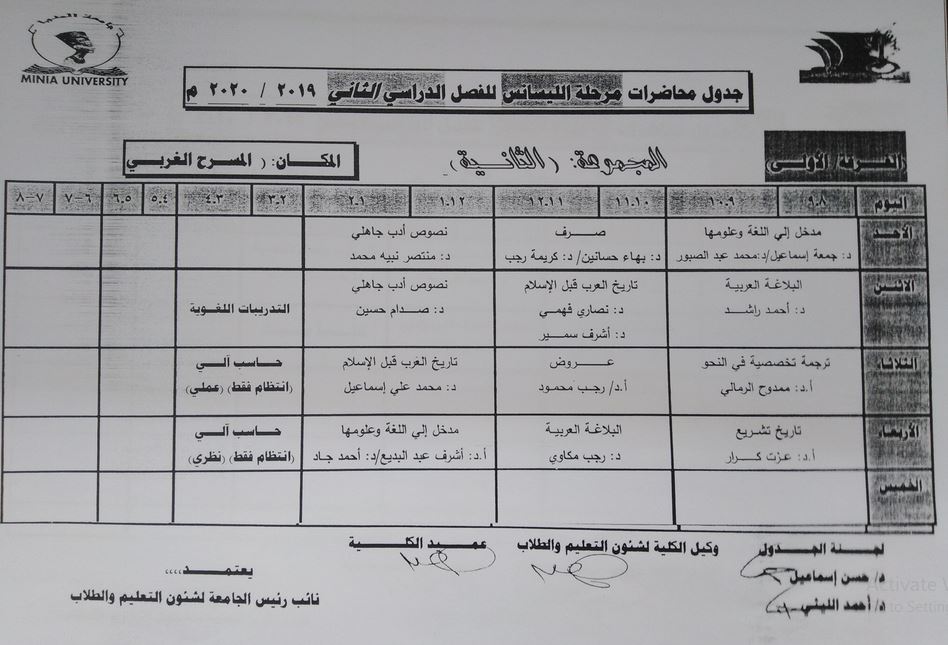 جامعة المنيا
MINIA UNIVERSITY
جدول محاضرات مرحلة الليسانس للفصل الدراسي الثاني ٢٠١٩ / ٢٠٢٠ م
الفرقة/ الأولى)
المجموعة: (الثانية)
المكان: ( المسرح الغربي
اليوم ٩.٨ ١٠.٩ ١١.١٠ ١٢.١١ ١.١٢ ٢.١ ٣.٢ ٤.٣ ٥.٤ ٦.٥ ٧-٦ ٨-٧
الأحد
مدخل إلي اللغة وعلومها
د: جمعة إسماعيل/د:محمد عبد الصبور
صـــرف
د: بهاء حسانين/ د: كريمة رجب
نصوص أدب جاهلي
د: منتصر نبيه محمد
الاثنين
البلاغة العربية
د: أحمد راشد
تاريخ العرب قبل الإسلام
د: نصاري فهمي
د: أشرف سمير
نصوص أدب جاهلي
د: صدام حسين
التدريبات اللغوية
الثلاثاء
ترجمة تخصصية في النحو
أ.د: ممدوح الرمالي
عـــروض
أ.د/ رجب محمود
تاريخ العرب قبل الإسلام
د: محمد علي إسماعيل
حاسب آلي
(انتظام فقط) (عملي)
الأربعاء
تاريخ تشريع
أ.د: عزت كرار
البلاغة العربية
د: رجب مكاوي
مدخل إلي اللغة وعلومها
أ.د: أشرف عبد البديع/د: أحمد جاد
حاسب آلي
(انتظام فقط) (نظري)
الخميس
لجنة الجدول
د/ حسن إسماعيل
د/ أحمد الليثي
وكيل الكلية لشئون التعليم والطلاب
عميد الكلية
يعتمد،،،،
نائب رئيس الجامعة لشئون التعليم والطلاب
Activate
to Setting